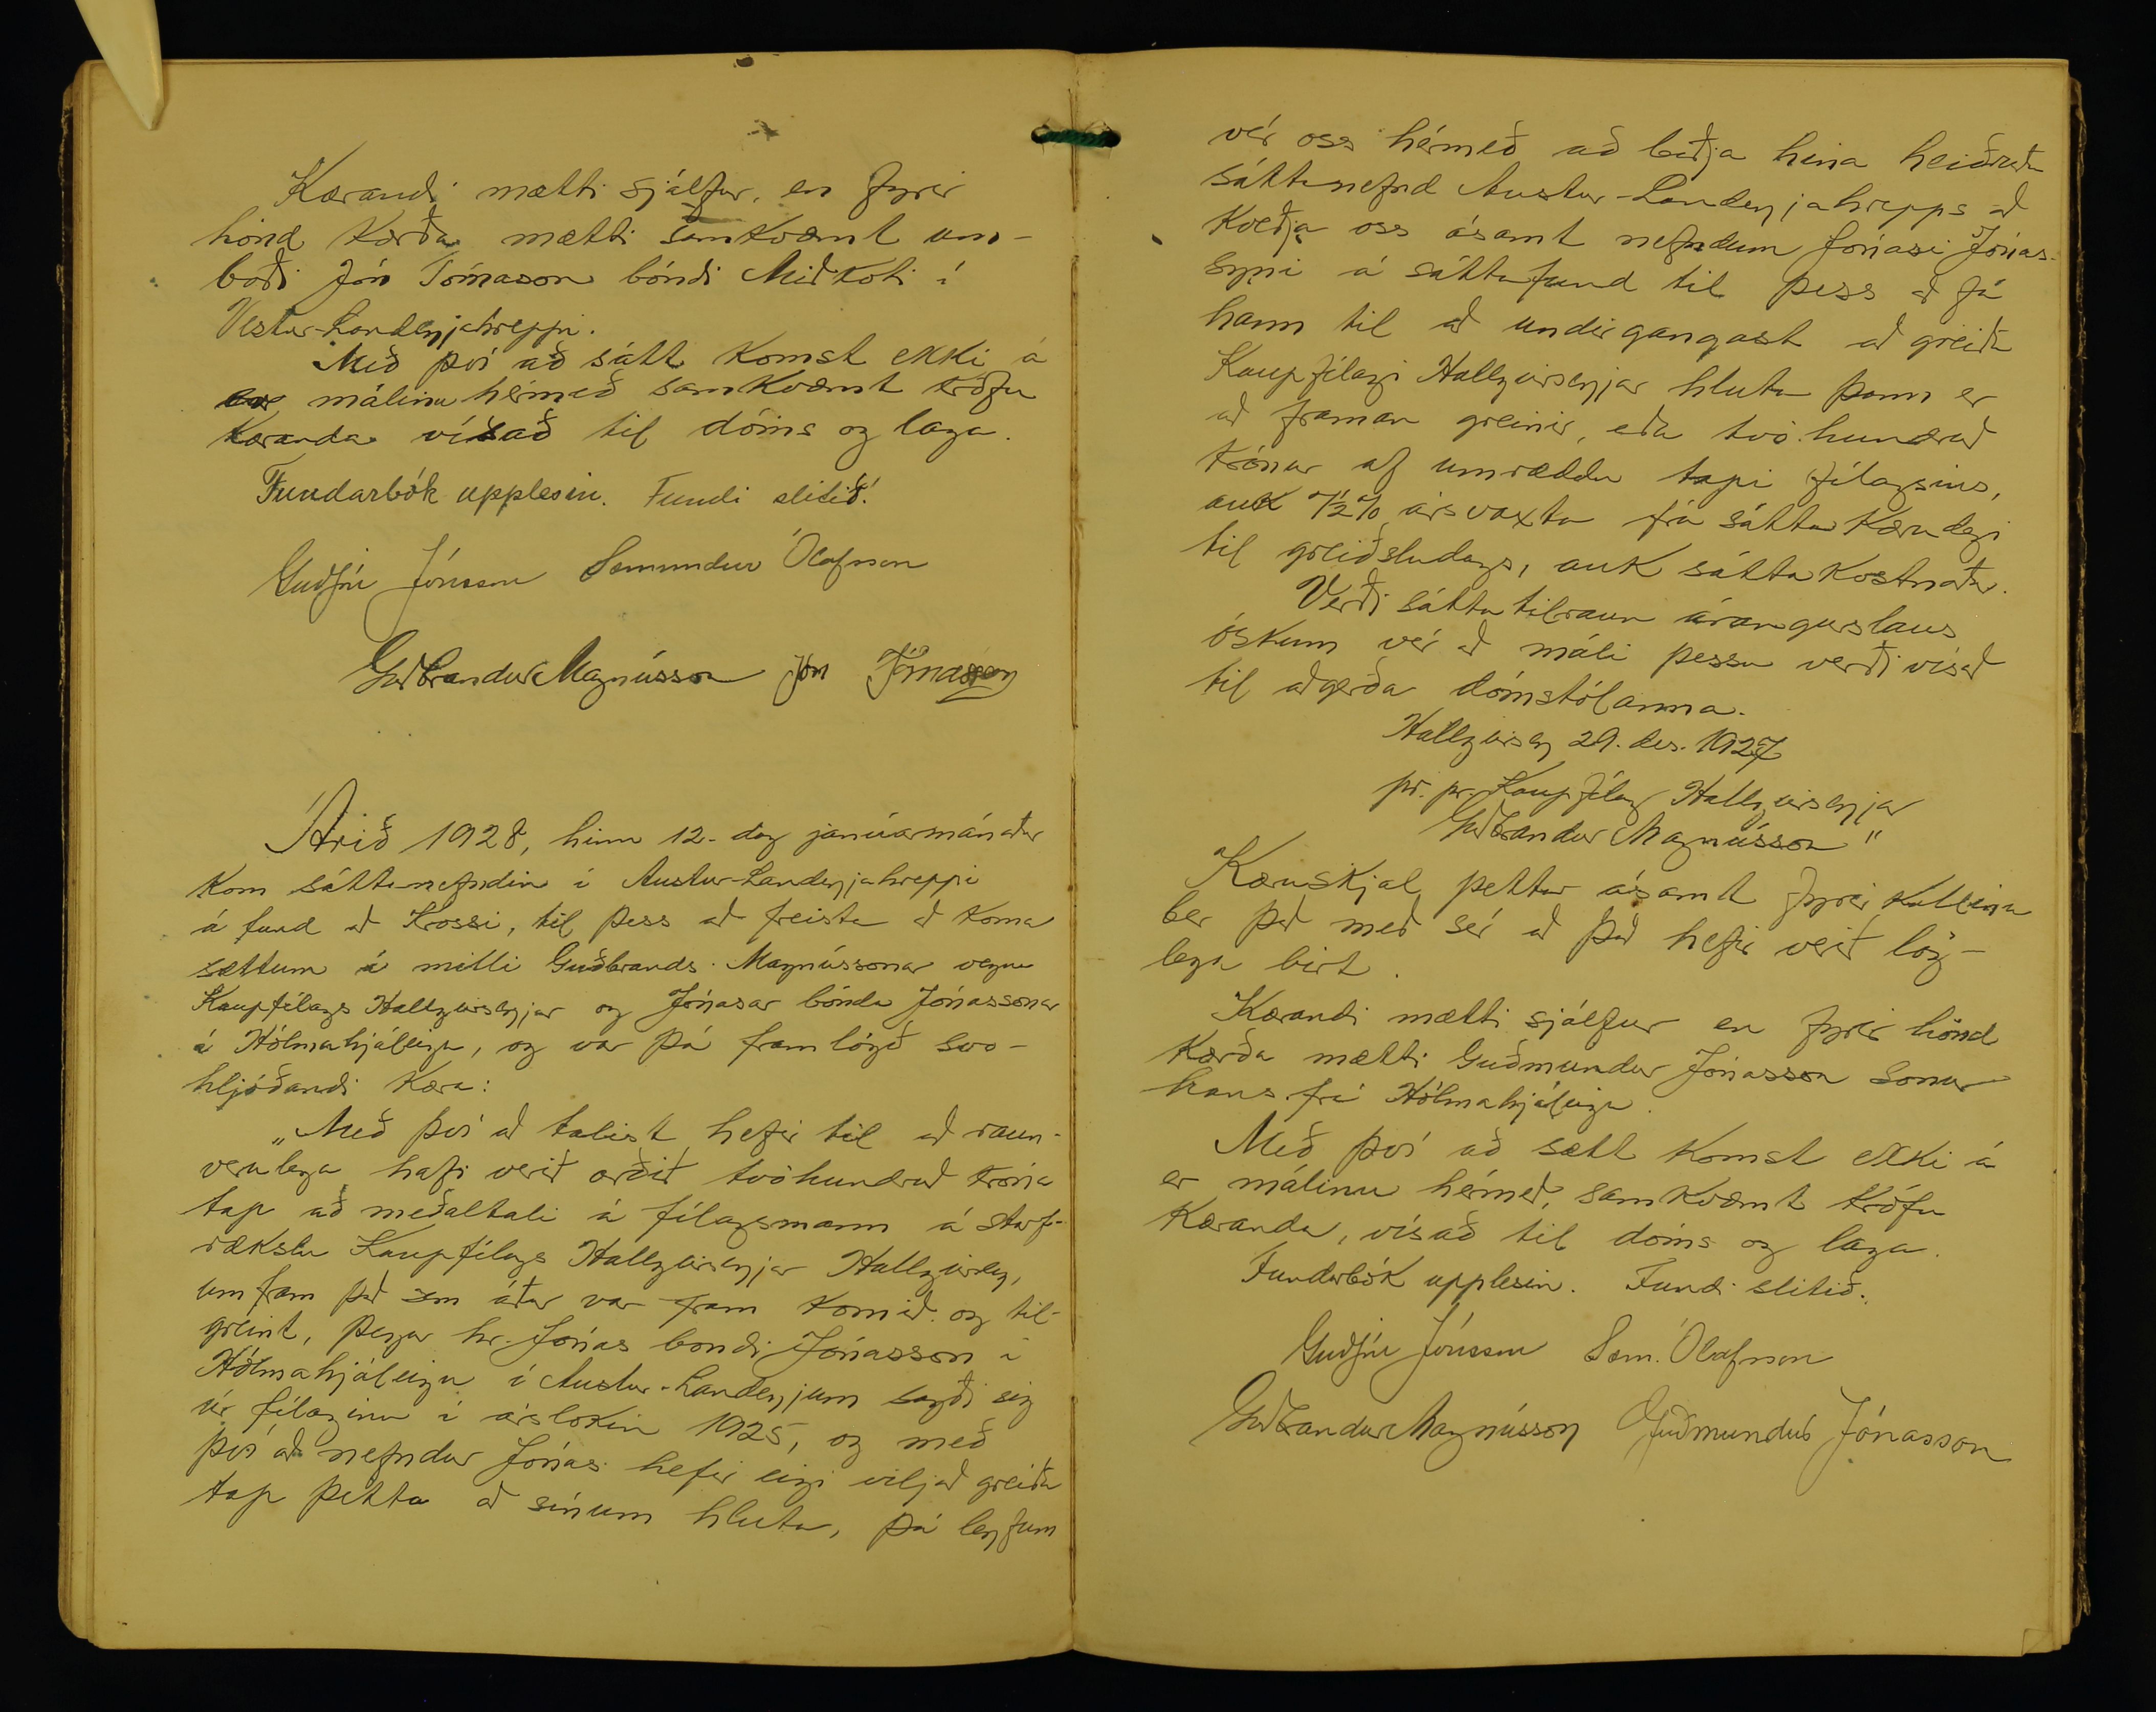 Kærandi mætti sjálfur, en fyrir
hönd kærða mætti samkvæmt um-
boði Jón Tómasson bóndi Miðkoti í
Vestur-Landeyjahreppi.
Með því að sátt komst ekki á
er málinu hérmeð samkvæmt kröfu
kæranda vísað til dóms og laga.
Fundarbók upplesin. Fundi slitið.
Guðjón Jónsson Sæmundur Ólafsson
Guðbrandur Magnússon Jón Tómasson
Árið 1928, hinn 12. dag janúarmánaðar
kom sáttanefndin í Austur-Landeyjahreppi
á fund að Krossi, til þess að freista að koma
sættum á milli Guðbrands Magnússonar vegna
Kaupfélags Hallgeirseyjar og Jónasar bónda Jónassonar
á Hólmahjáleigu, og var þá framlögð svo-
hljóðandi kæra:
„Með því að talist hefir til að raun-
verulega hafi verið orðið tvöhundruð króna
tap að meðaltali á félagsmann á starf-
rækslu Kaupfélags Hallgeirseyjar Hallgeirsey,
um fram það sem áður var fram komið og til-
greint, þegar hr. Jónas bondi Jónasson í
Hólmahjáleigu í Austur-Landeyjum sagði sig
úr félaginu í árslokin 1925, og með
því að nefndur Jónas hefir eigi viljað greiða
tap þetta að sínum hluta, þá leyfum
vér oss hérmeð að beiðja hina heiðruðu
sáttanefnd Austur-Landeyjahrepps að
kveðja oss ásamt nefndum Jónasi Jónas-
syni á sáttafund til þess að fá
hann til að undirgangast að greiða
Kaupfélagi Hallgeirseyjar hluta þann er
að framan greinir, eða tvö hundruð
krónur af umræddu tapi félagsins,
auk 7½% ársvaxta frá sáttakærudegi
til greiðsludags, auk sáttakostnaðar.
Verði sáttatilraun árangurslaus
óskum vér að máli þessu verði vísað
til aðgerða dómstólanna.
Hallgeirsey 29. des. 1927
pr. pr. Kaupfélag Hallgeirseyjar
Guðbrandur Magnússon"
Kæruskjal þettar ásamt fyrirkallinu
ber það með sér að það hefir verið lög-
lega birt.
Kærandi mætti sjálfur en fyrir hönd
kærða mætti Guðmundur Jónasson sonur
hans frá Hólmahjáleigu.
Með því að sætt komst ekki á
er málinu hérmeð, samkvæmt kröfu
kæranda, vísað til dóms og laga.
Fundarbók upplesin. Fundi slitið.
Guðjón Jónsson Sæm. Ólafsson
Guðbrandur Magnússon Guðmundur Jónasson